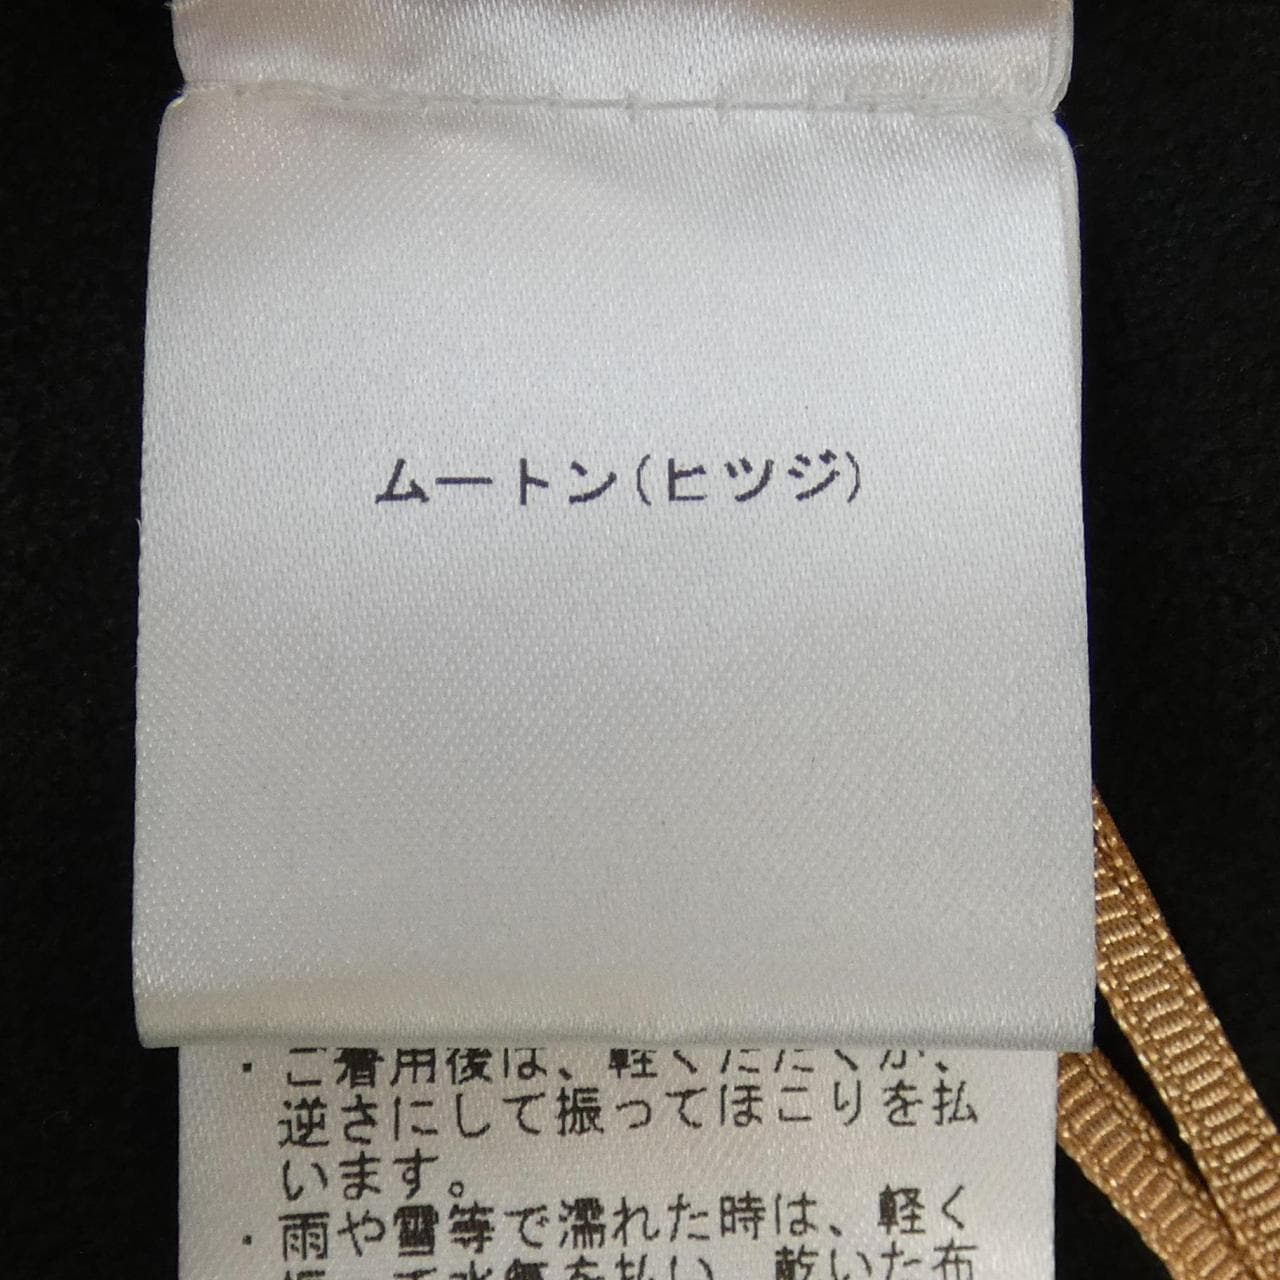 ムートン(ヒツジ)
・ご着用後は、軽くたたくか、
逆さにして振ってほこりを払
います。
・雨や雪等で濡れた時は、軽く
振って水気を払い、乾いた布